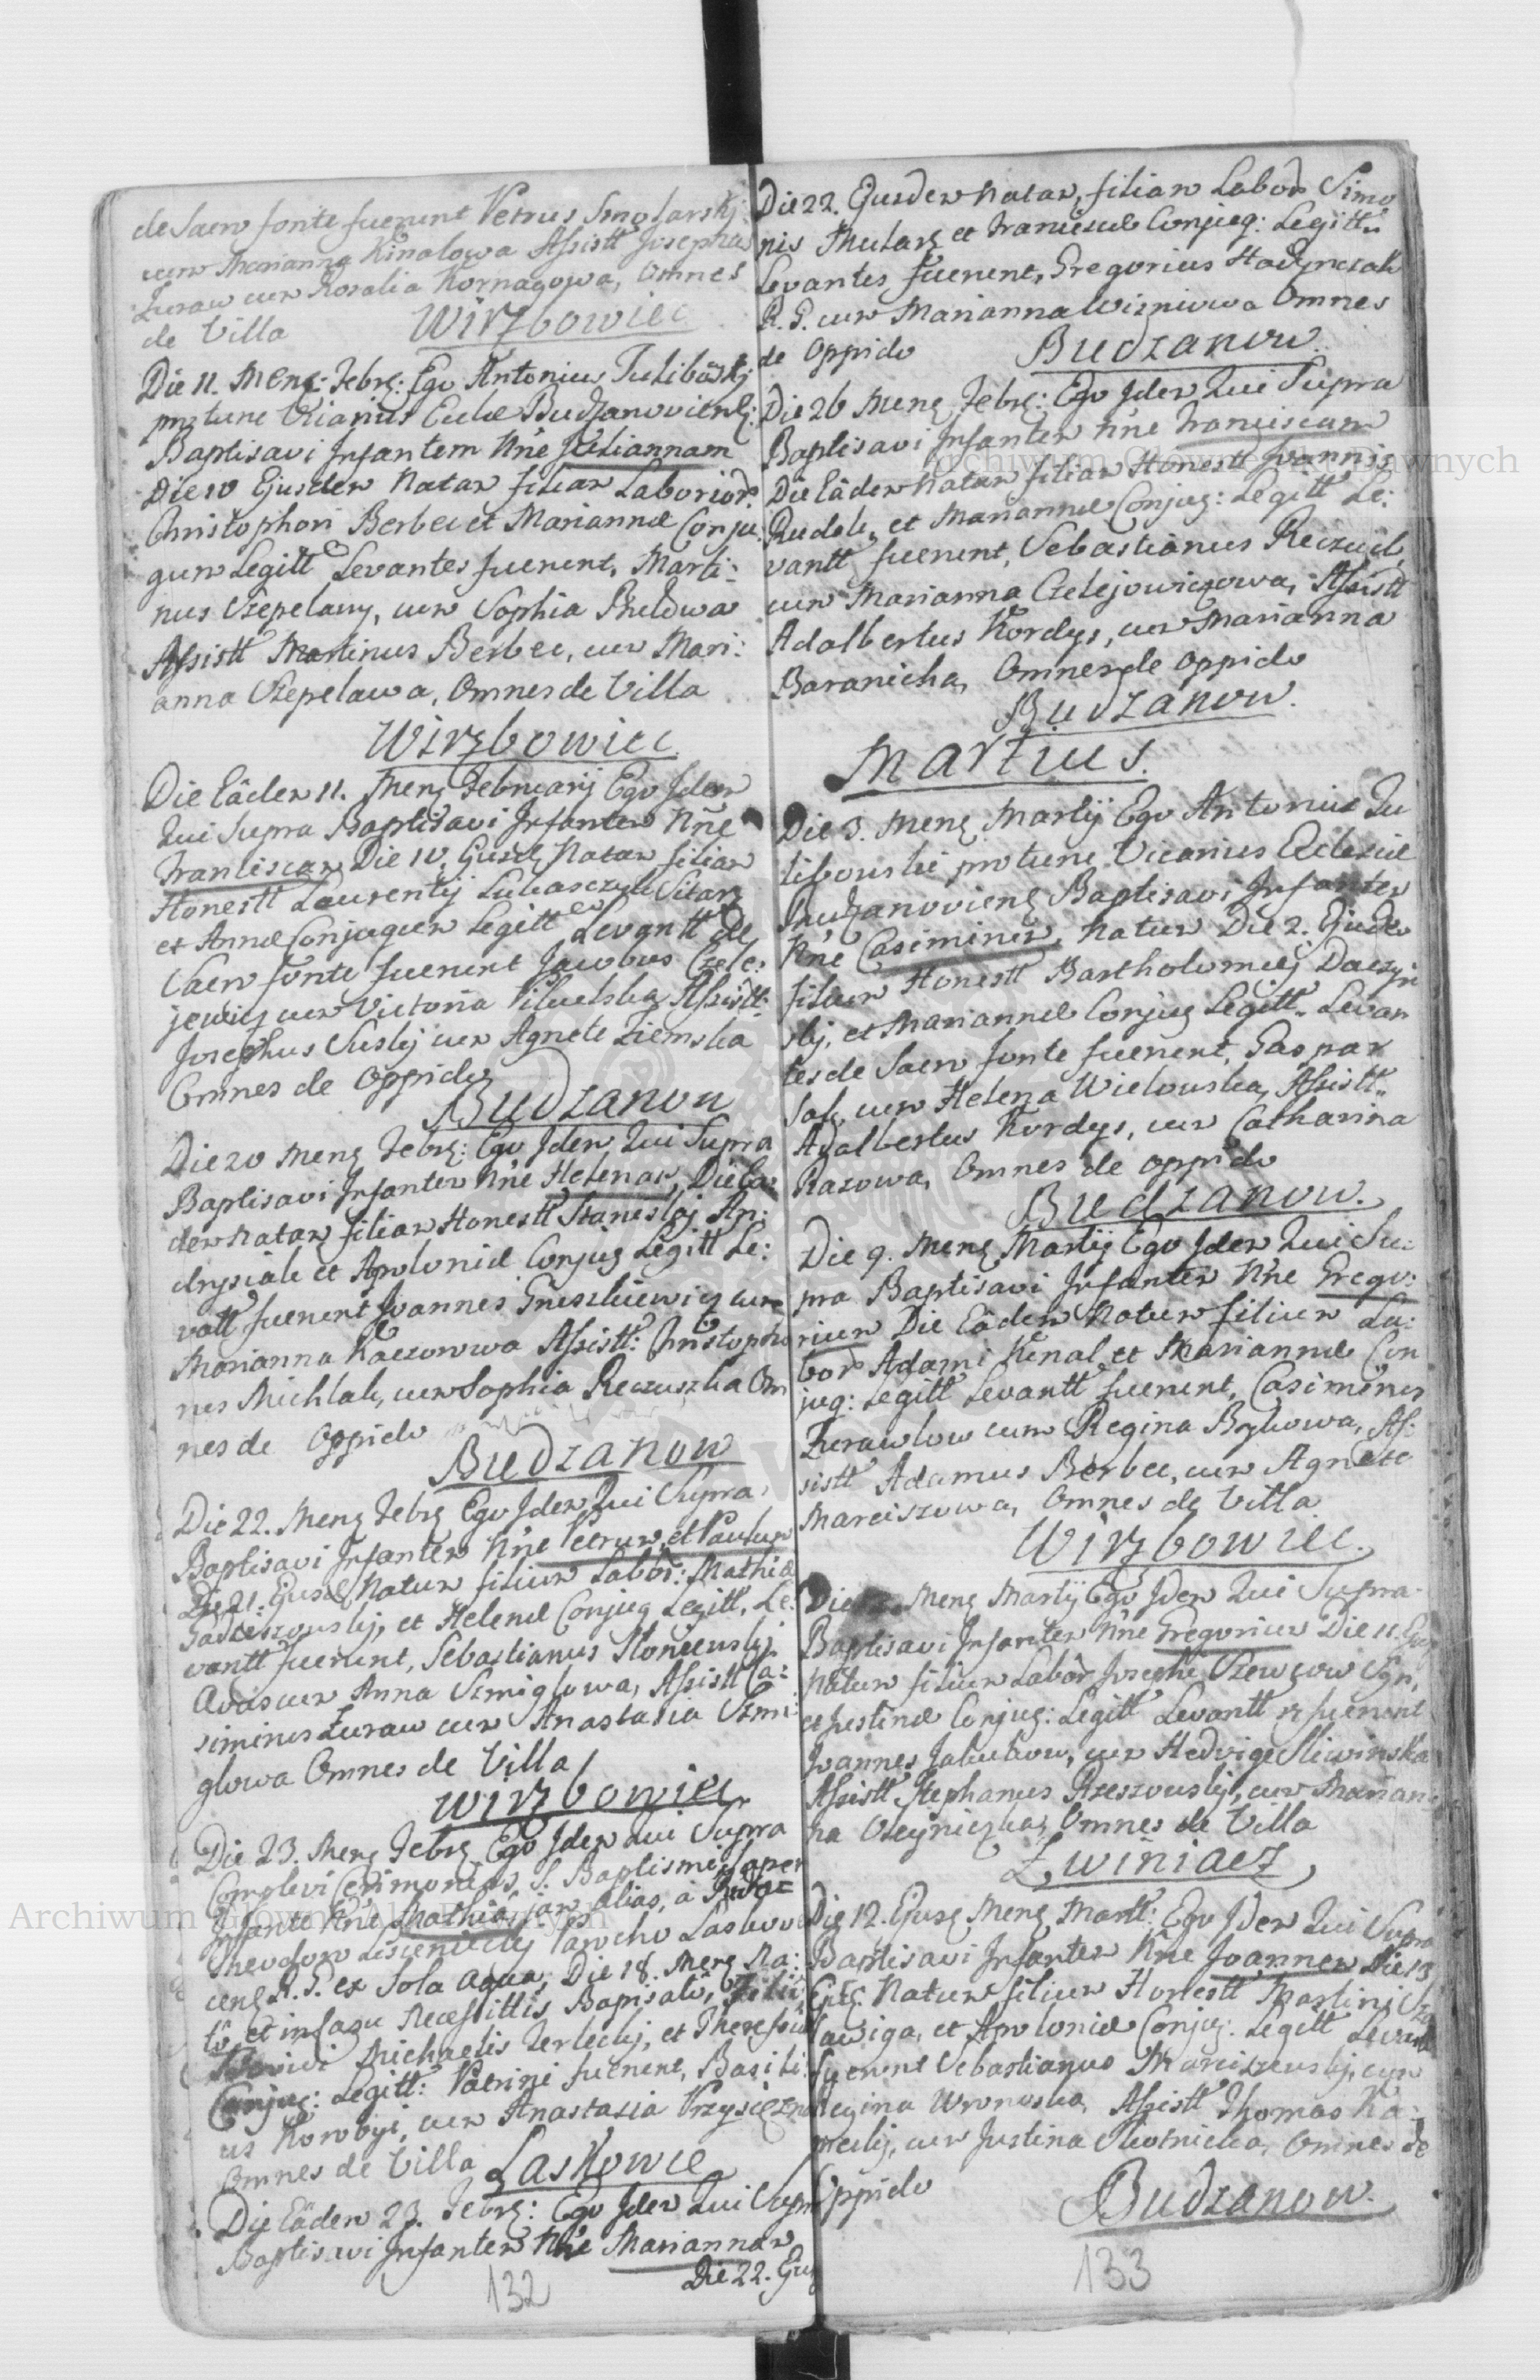 de Sacro fonte fuerunt Petrus Smolarskij
cum Marianna Kinalowa Assistt Josephus
Zuraw cum Rosalia Kornagowa, Omnes
de Villa Wirzbowiec
Die 11. Mens: Febrs: Ego Antonius Tulibowskj
protunc Vicarius Eccłae Budzanoviens:
Baptisavi Infantem Nne Juliannam
Die 10 Ejusdem Natam filiam Laborios
Christophori Berbec et Mariannæ Conju
gum Legitt Levantes fuerunt, Marti:
nus Szepelawy, cum Sophia
Assistt Martinus Berbec, cum Mari:
anna Szepelawa, Omnes de Villa
Wirzbowiec
Die Eâdem 11. Mens Februarij Ego Idem
Qui Supra Baptisavi Infantem Nne
Franciscam Die 10. Ejusd Natam filiam
Honestt Laurentij Lukasczyk Sitarz
et Annæ Conjugum Legitt Levantt de
Sacro fonte fuerunt Jacobus Czele:
jewicz cum Victoria Assistt:
Josephus Suskj cum Agnete Ziemska
Omnes de Oppido
Budzanow
Die 20 Mens Febrs: Ego Idem Qui Supra
Baptisavi Infantem Nne Helenam, Die Eâ:
dem Natam filiam Honestt Stanislaj An:
drysiak et Apoloniæ Conjug Legitt Le:
vatt fuerunt Joannes Gruszkiewicz cum
Marianna Kaczorowa Assistt: Christopho
rus Michlak, cum Sophia Reczuszka Om
nes de Oppido
Budzanow
Die 22. Mens Febrs Ego Idem Qui Supra
Baptisavi Infantem Nne Petrum, et Paulum
Die 21. Ejusd Natum filium Labor: Mathiæ
et Helenæ Conjug Legitt, Le:
vantt fuerunt, Sebastianus Słoneckj
cum Anna Szmiglowa, Assistt Ca:
simirus Zuraw cum Anastasia Szmi:
glowa Omnes de Villa
Wirzbowiec
Die 23. Mens Febrs Ego Idem Qui Supra
Complevi Ceremonias S. Baptismi super
Infante Nne Mathia, jam alias, a
Theodoro Parocho Laskove
cens R. G. ex Sola aqua, Die 18. Mens Na:
to, et in Casu Necessittis Baptisato, Filio
Michaelis Terleckj, et Theressiæ
Conjug: Legitt: Patrini fuerunt, Basili
us Korobyi, cum Anastasia
Omnes de Villa Laskowce
Die Eâdem 23. Febrs: Ego Idem Qui Supra
Baptisavi Infantem Nne Mariannam
Die 22. Ejus
132
Die 22. Ejusdem Natam, filiam Labor Simo
nis Mular et Franciscæ Conjug: Legitt.
Levantes fuerunt, Gregorius Hadynczak
R. G. cum Marianna Wizniowa Omnes
de Oppido Budzanow.
Die 26 Mens Febrs: Ego Idem Qui Supra
Baptisavi Infantem Nne Franciscam
Die Eâdem Natam filiam Honestt Joannis
Rudek, et Mariannæ Conjug: Legitt Le:
vantt fuerunt, Sebastianus Reczuch,
cum Marianna Czelejowiczowa, Assistt
Adalbertus Kordys, cum Marianna
Baranicha, Omnes de Oppido
Budzanow.
Martius.
Die 3. Mens Martij Ego Antonius Tu
libowski protunc Vicarius Eclesiæ
Budzanoviens Baptisavi Infantem
Nne Casimirum, Natum Die 2. Ejusdem
filium Honestt Bartholomæj Daczyn
skj, et Mariannæ Conjug Legitt. Levan
tes de Sacro fonte fuerunt, Gaspar
Sak, cum Helena Wielowska, Assistt.
Adalbertus Kordys, cum Catharina
Razowa, Omnes de oppido
Budzanow.
Die 9. Mens Martij Ego Idem Qui Su:
pra Baptisavi Infantem Nne Grego:
rium Die Eâdem Natum filium La:
bor Adami Kinal, et Mariannæ Con
jug: Legitt Levantt fuerunt, Casimirus
Zurawlow cum Regina Bykowa, As:
sistt Adamus Berbec, cum Agnete
Marciszowa, Omnes de Villa
Wirzbowiec.
Die Mens Martij Ego Idem Qui Supra
Baptisavi Infantem Nne Gregorium Die 11. Ejus
Natum filium Labor Josephi Szewczow
et Justinæ Conjug: Legitt Levantt fuerunt
Joannes Jakubow, cum Hedvige Sliwinska
Assistt Stephanus Rzeszowskj, cum Marian:
na Oleyniczka, Omnes de Villa
Zwiniacz
Die 12. Ejusd Mens Martt: Ego Idem Qui Supra
Baptisavi Infantem Nne Joannem Die
Ejusd. Natum filium Honestt Martini
et Apoloniæ Conjug. Legitt Levantt
fuerunt Sebastianus Marciszewskj, cum
Regina Wronska, Assistt Thomas Ka:
cum Justina Skotnicka, Omnes de
Oppido
Budzanow.
133
Archiwum Główne Akt Dawnych
Archiwum Główne Akt Dawnych